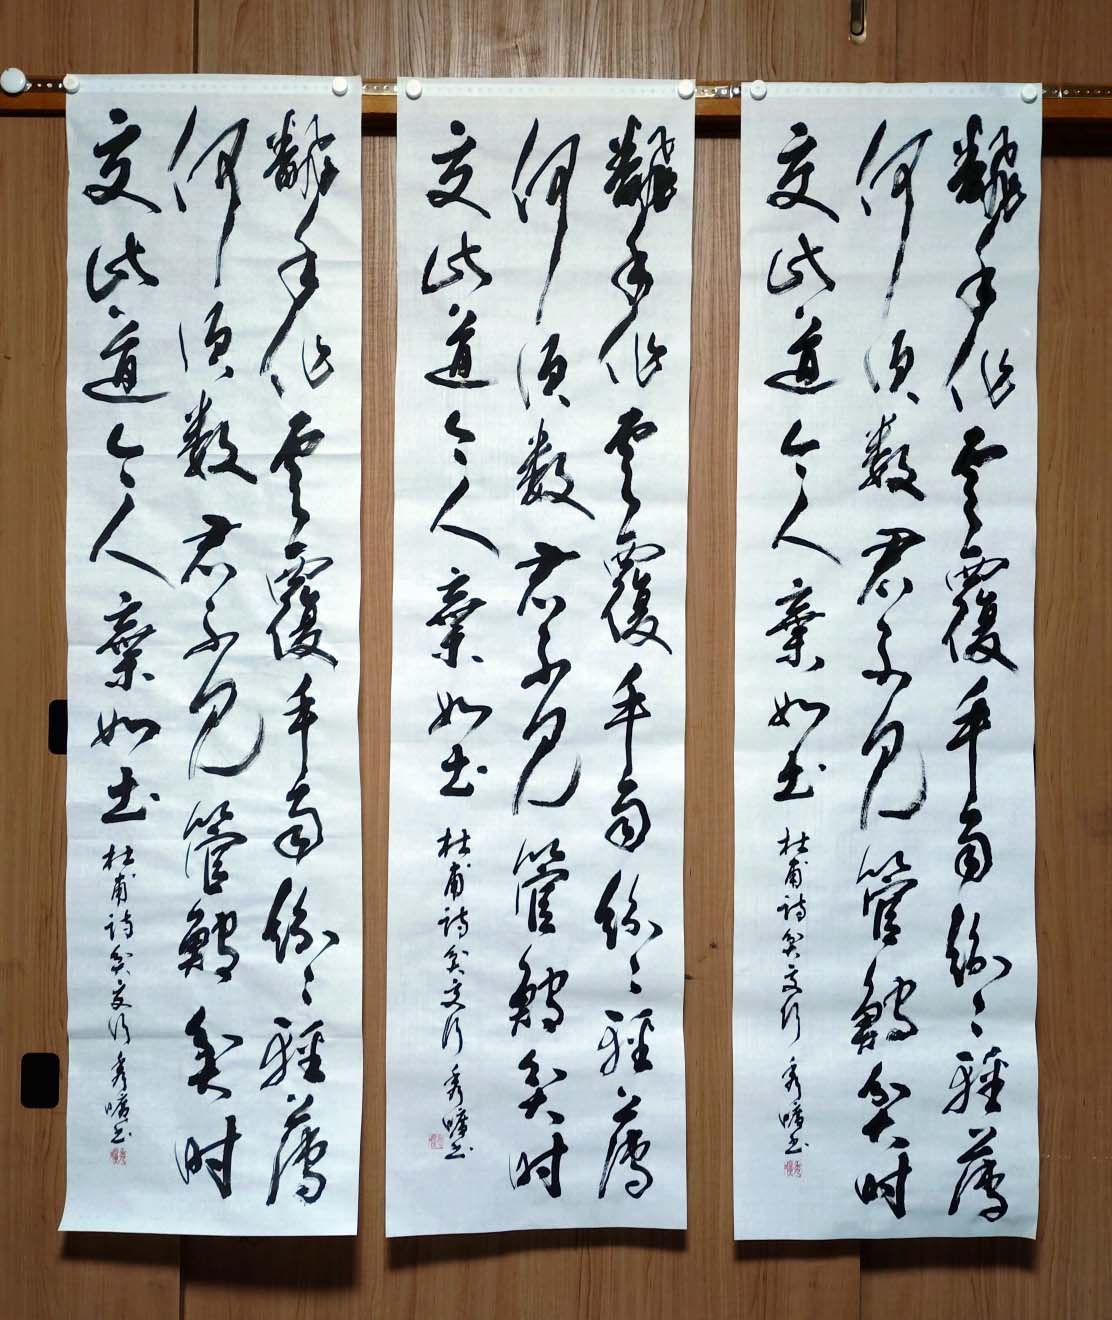 翻手作雲覆手雨紛々軽薄
何須数君不見管鮑貧時
交此道今人棄如土
杜甫詩貧交行 秀曠書
翻手作雲覆手雨紛々軽薄
何須数君不見管鮑貧時
交此道今人棄如土
杜甫詩貧交行 秀曠書
翻手作雲覆手雨紛々軽薄
何須数君不見管鮑貧時
交此道今人棄如土
杜甫詩貧交行 秀曠書